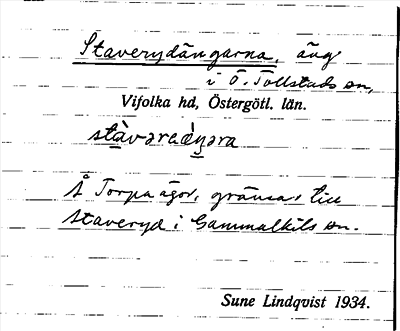 Staverydängarna, äng
i Ö. Tollstads sn,
Vifolka hd, Östergötl. län.
stàvəraèŋəra
Å Torpa ägor, gränsar till
Staveryd i Gammalkils sn.
Sune Lindqvist 1934.